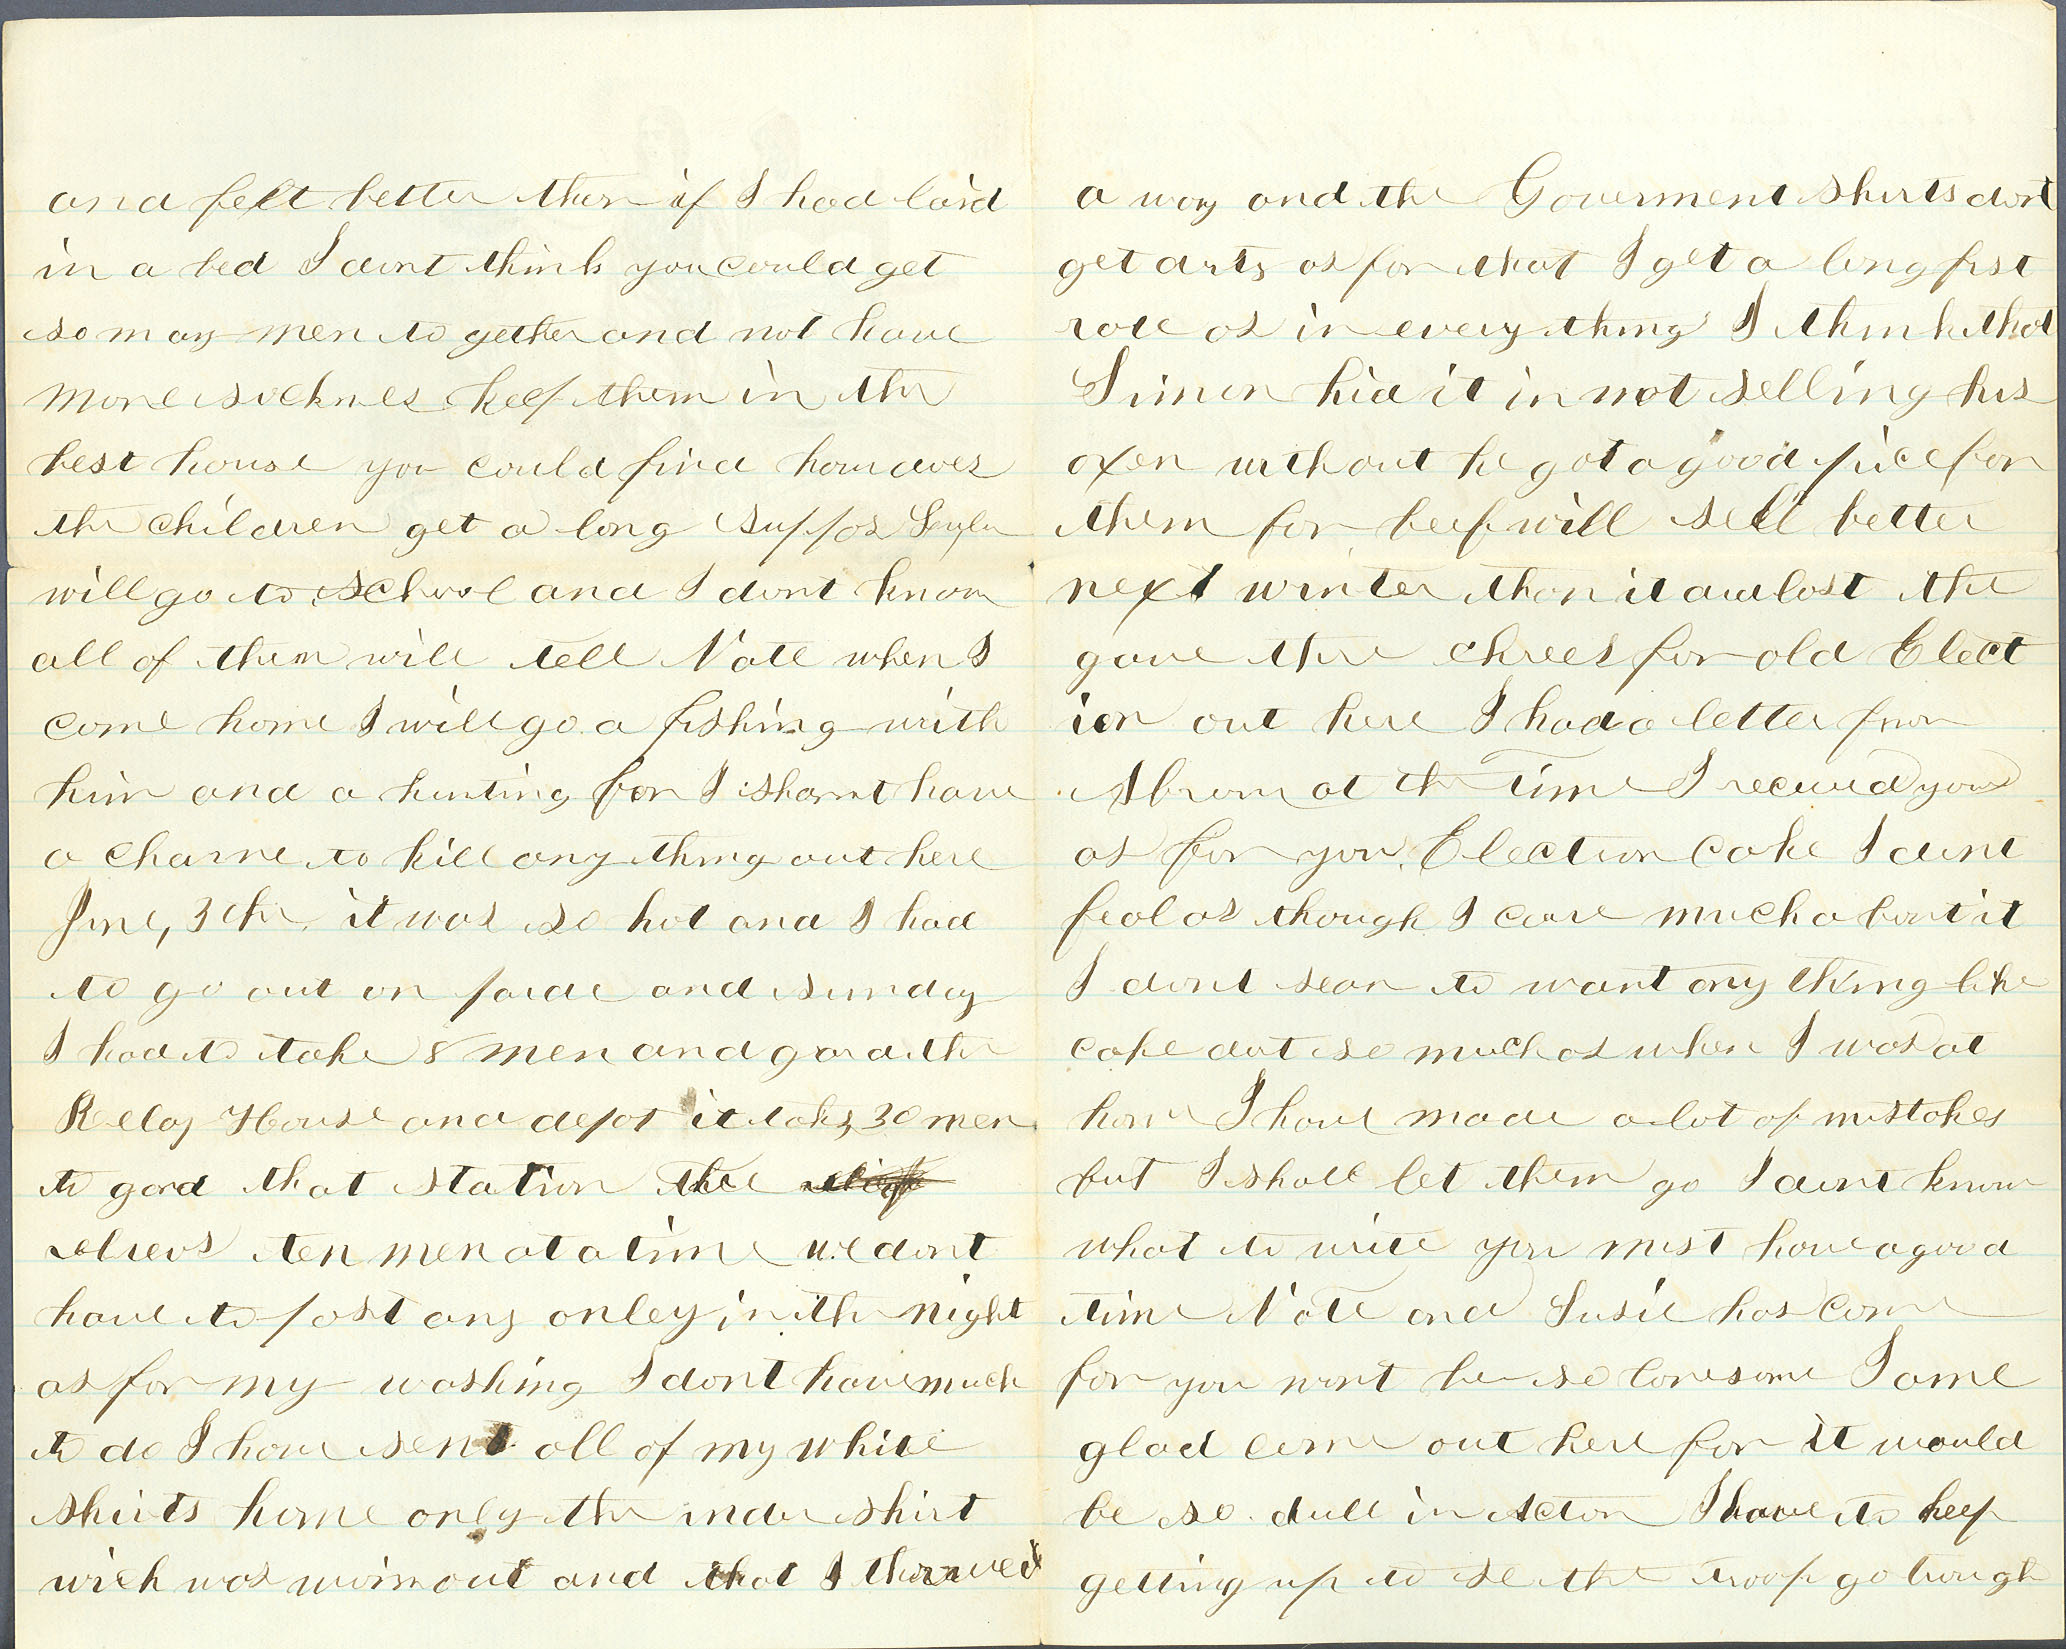 and felt better then if I had laid
in a bed I dont think you could get
so many men to gether and not have
more sicknes keep them in the
best house you could find how does
the children get a long suppos
will go to school and I dont know
all of them will tell Nate when I
come home I will go a fishing with
him and a hunting for I sharnt have
a charne to kill any thing out here
June, 3th, it was so hot and I had
to go out on parde and sunday
I had to take 8 men and gard the
Relay House and depot it takes 30 men
to gard that station the
releivs ten men at a time we dont
have to post any onley in the night
as for my washing I dont have much
to do I have sent all of my white
shirts home only the under shirt
wich was worn out and that I throwed
a way and the Goverment shirts dont
get dirty as for that I get a long first
rate as in every thing I think that
Simon hid it in not selling his
oxen without he got a good price for
them for beef will sell better
next winter than it did last the
gave thre chrees for old Elect
ion out here I had a letter from
Abrom at the Time I receved yours
as for you Election Cake I dont
feal as though I care much about it
I dont sean to want any thing like
cake dut so much as when I was at
home I have made a lot of mistakes
but I shall let them go I dont know
what to write you must have a good
time Nate and Susie has come
for you wont be so lonesome I ame
glad come out here for it would
be so dull in Acton I have to keep
getting up to se the troop go trough